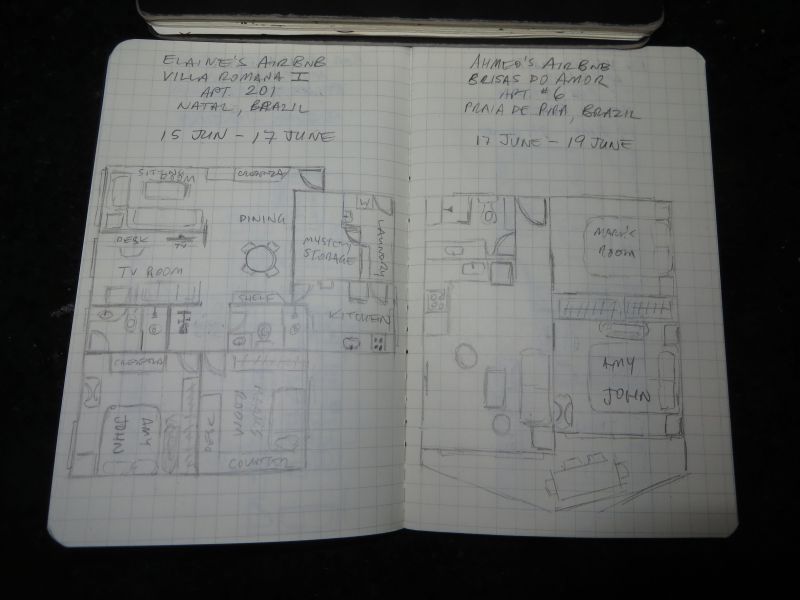 ELAINE'S AIRBNB
VILLA ROMANA I
APT. 201
NATAL, BRAZIL
15 JUN - 17 JUNE
SITTING
ROOM
CREDENZA
DINING
DESK
TV
TV ROOM
MYSTERY
STORAGE
LAUNDRY
SHELF
KITCHEN
CREDENZA
AMY
JOHN
MARK'S
ROOM
DESK
COUNTER
AHMED'S AIRBNB
BRISAS DO AMOR
APT. #6
PRAIA DE PIPA, BRAZIL
17 JUNE - 19 JUNE
MARK'S
ROOM
AMY
JOHN